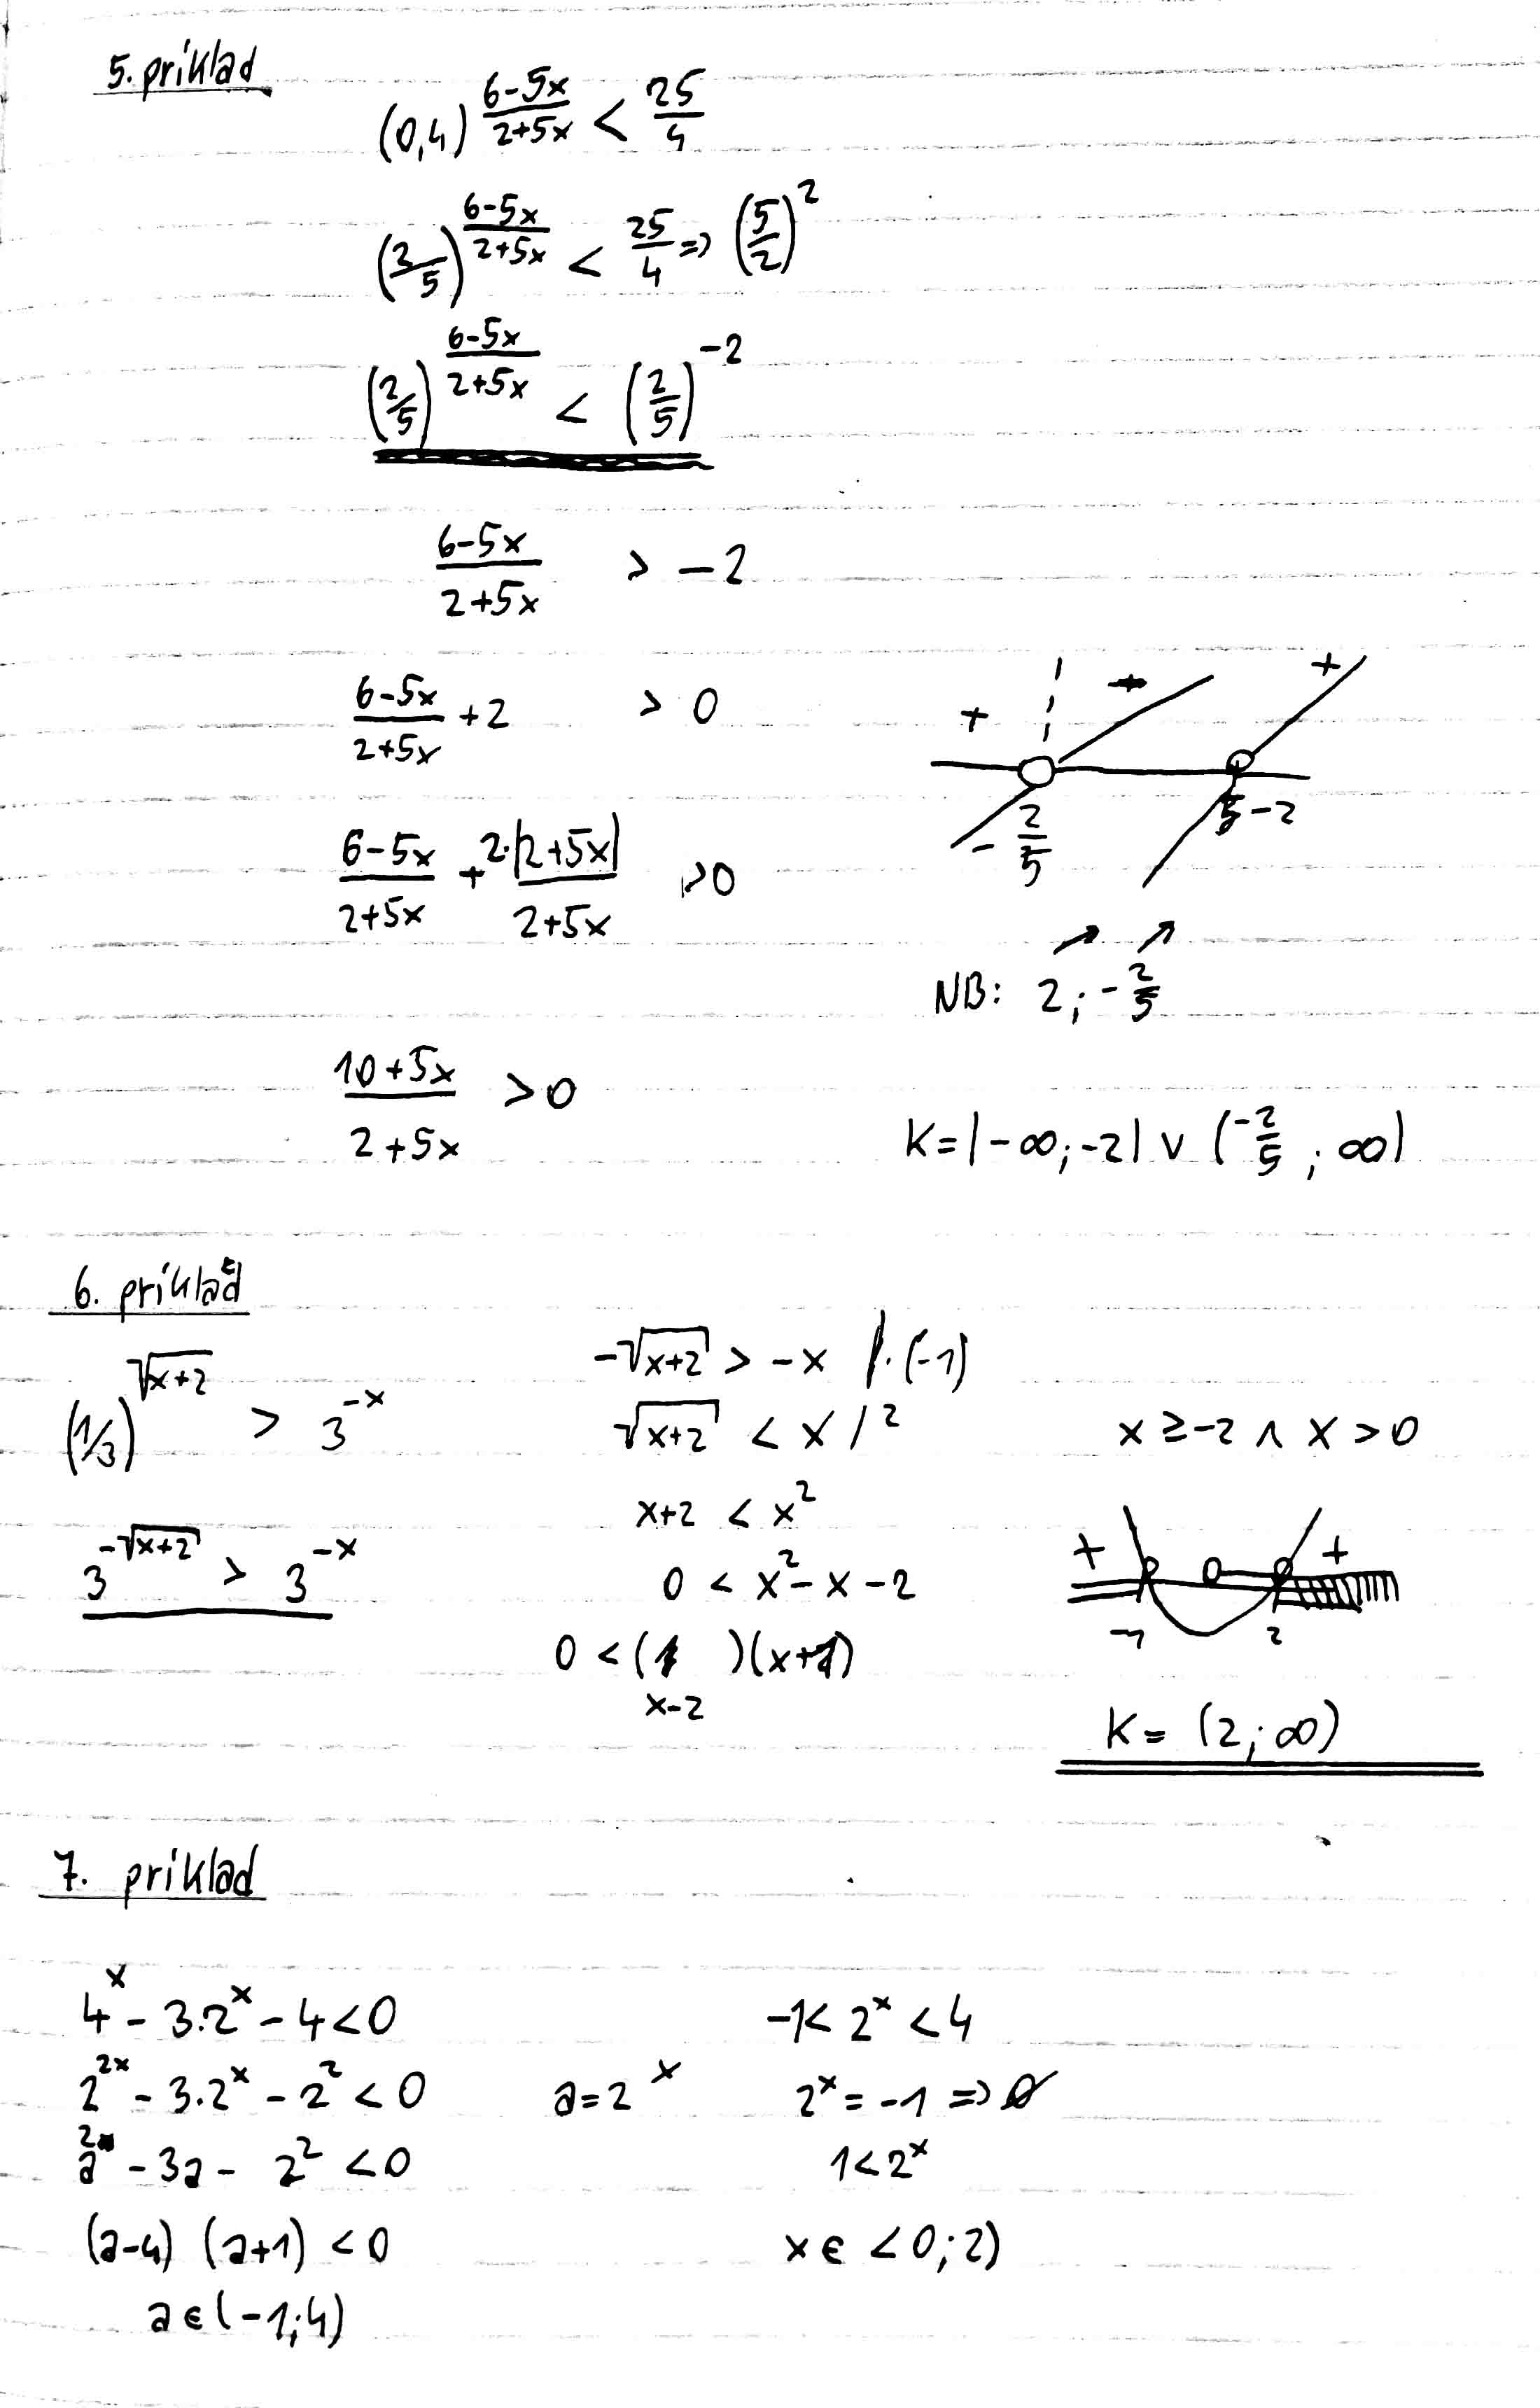 5. príklad
(0,4)^((6-5x)/(2+5x)) < 25/4
(2/5)^((6-5x)/(2+5x)) < 25/4 => (5/2)^2
(2/5)^((6-5x)/(2+5x)) < (2/5)^-2
(6-5x)/(2+5x) > -2
(6-5x)/(2+5x) + 2 > 0
+ + +
- 2/5 -2
(6-5x)/(2+5x) + 2·(2+5x)/(2+5x) > 0
NB: 2; -2/5
(10+5x)/(2+5x) > 0
K = (-∞; -2) ∨ (-2/5; ∞)
6. príklad
(1/3)^√(x+2) > 3^-x
3^-√(x+2) > 3^-x
-√(x+2) > -x /·(-1)
√(x+2) < x /^2
x+2 < x^2
0 < x^2 - x - 2
0 < ( )(x+1)
x-2
x ≥ -2 ∧ x > 0
+ 0 +
-1 2
K = (2; ∞)
7. príklad
4^x - 3.2^x - 4 < 0
2^2x - 3.2^x - 2^2 < 0 a = 2^x
a^2 - 3a - 2^2 < 0
(a-4) (a+1) < 0
a ϵ (-1; 4)
-1 < 2^x < 4
2^x = -1 => ∅
1 < 2^x
x ϵ <0; 2)